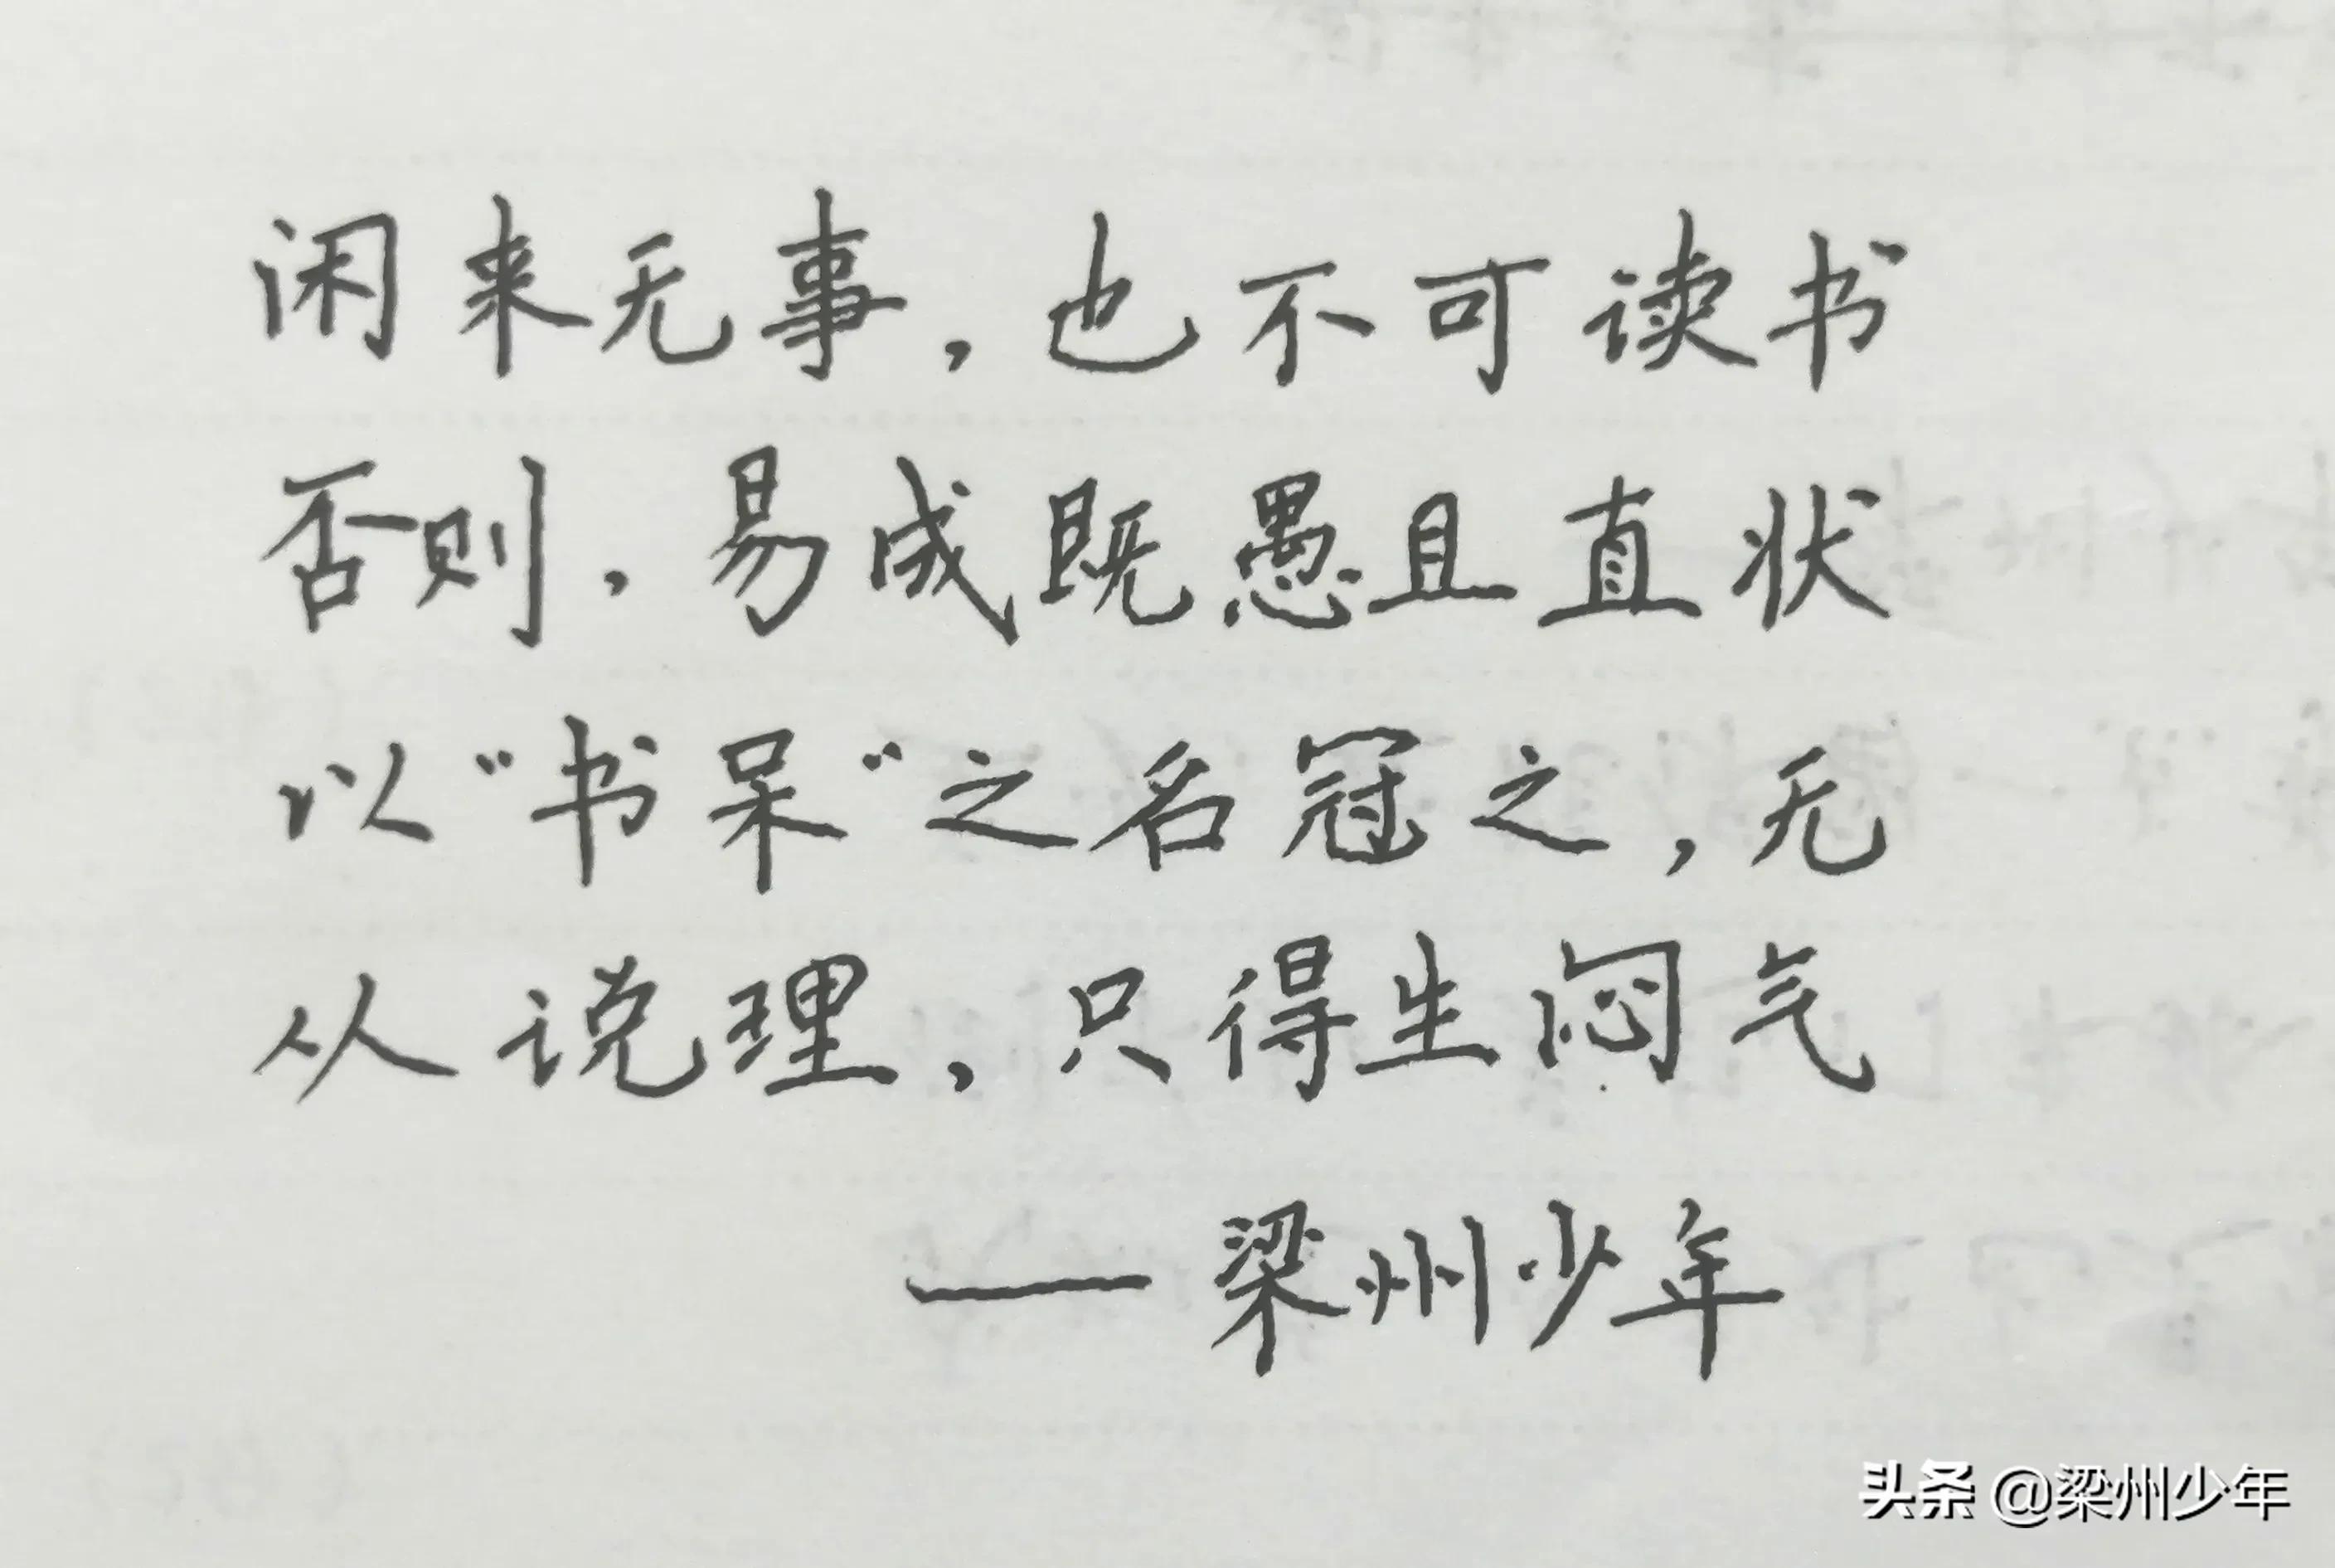 闲来无事，也不可读书
否则，易成既愚且直状
以“书呆”之名冠之，无
从说理，只得生闷气
——梁州少年
头条 @梁州少年